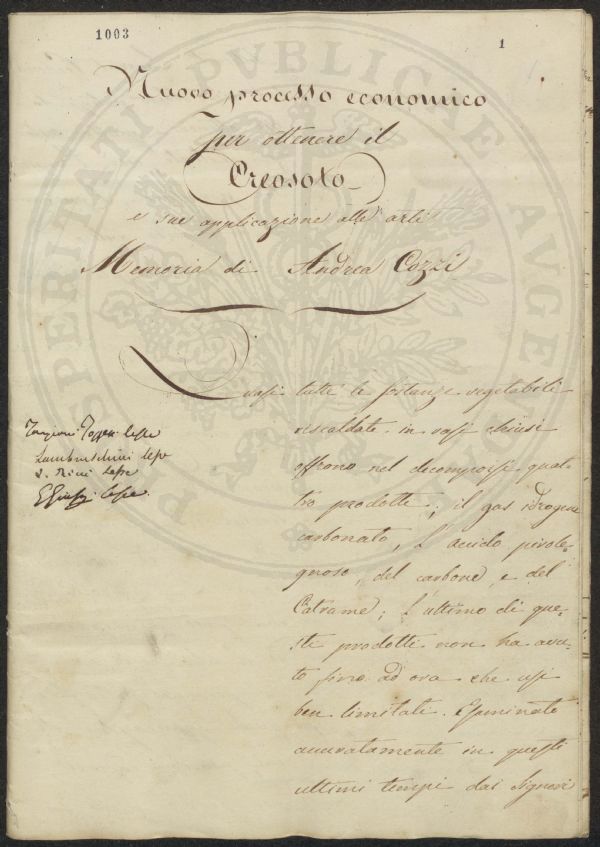 1003
1
Nuovo processo economico
Per ottenere il
Creosoto
e sue applicazione alle arti
Memoria di Andrea Cozzi
Quasi tutte le sostanze vegetabili
riscaldate in vasi chiusi
offrono nel decomporsi quat-
tro prodotti; il gas idrogene
carbonato, l'acido pirole-
gnoso, del carbone, e del
Catrame; l'ultimo di que-
sti prodotti non ha avu-
to fino ad ora che usi
ben limitati. Esaminato
accuratamente in questi
ultimi tempi dai Signori
Targioni Tozzetti lesse
Lambruschini lesse
lesse
lesse
PROSPERITATI PUBLICAE AUGENDAE